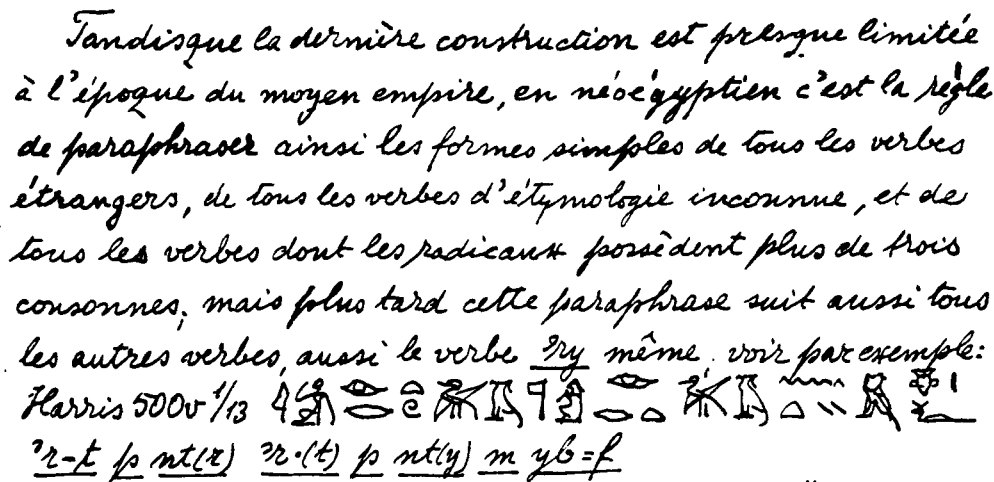 Tandisque la dernière construction est presque limitée
à l'époque du moyen empire, en néoégyptien c'est la règle
de paraphraser ainsi les formes simples de tous les verbes
étrangers, de tous les verbes d'étymologie inconnue, et de
tous les verbes dont les radicaux possèdent plus de trois
consonnes; mais plus tard cette paraphrase suit aussi tous
les autres verbes, aussi le verbe ꜣry même. voir par exemple:
Harris 500v 1/13
ꜣr-t p nt(r) ꜣr·(t) p nt(y) m yb=f